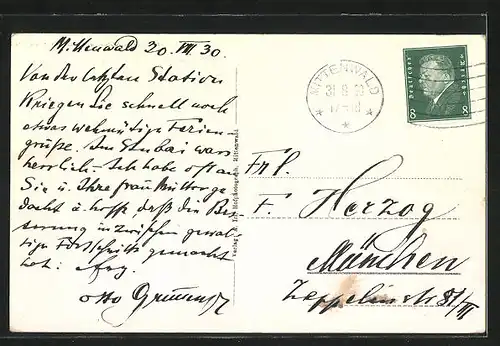 Mittenwald 20. VIII. 30.
Von der letzten Station
kriegen Sie schnell noch
etwas wehmütige Ferien-
grüße. Im Stubai war's
herrlich. Ich habe oft an
Sie u. Ihre Frau Mutter ge-
dacht u. hoffe, daß die Bes-
serung inzwischen gewal-
tige Fortschritte gemacht
hat.
Otto
MITTENWALD
Deutsches Reich
8 8
Frl.
F. Herzog
München
Zeppelinstr 81/III